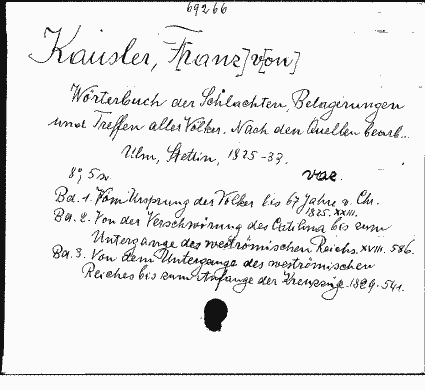 69266
Kausler, F[ranz] v[on]
Wörterbuch der Schlachten, Belagerungen
und Treffen aller Völker. Nach den Quellen bearb...
Ulm, Stettin, 1825-33.
8°, 5 vae.
Bd. 1. Vom Ursprung der Völker bis 67 Jahre v. Chr.
1825. XXIII.
Bd. 2. Von der Verschwörung des Catilina bis zum
Untergange des weströmischen Reichs. XVIII. 586.
Bd. 3. Von dem Untergange des weströmischen
Reiches bis zum Anfange der Kreuzzüge. 1829. 541.